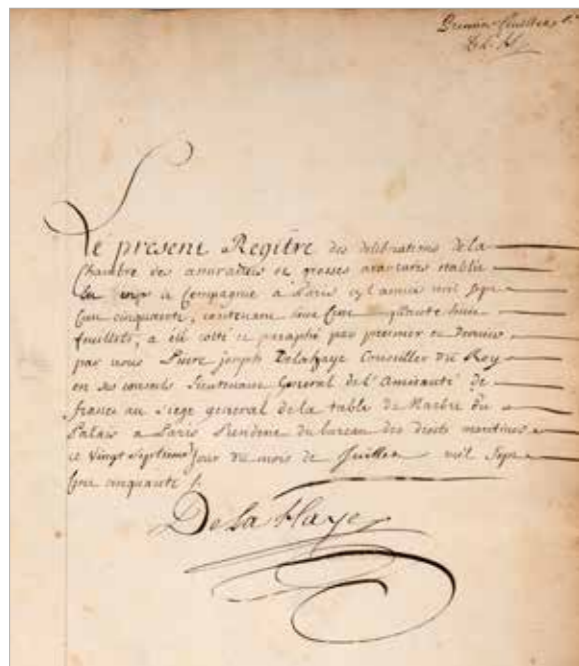 Premier feuillet
D.L.H
Le present Regitre des deliberations de la
Chambre des assurances et grosses avantures etablie
la Compagnie à Paris en l'année mil sept
Cent cinquante, contenant huit
feuillets, a été cotté et paraphé par premier et dernier
par nous Pierre Joseph Delahaye Conseiller du Roy
en ses conseils Lieutenant General de l'Amirauté de
france au Siege general de la table de Marbre du
Palais a Paris du bureau des droits maritimes
ce vingt septieme Jour du mois de Juillet mil sept
Cent cinquante /.
De la Haye